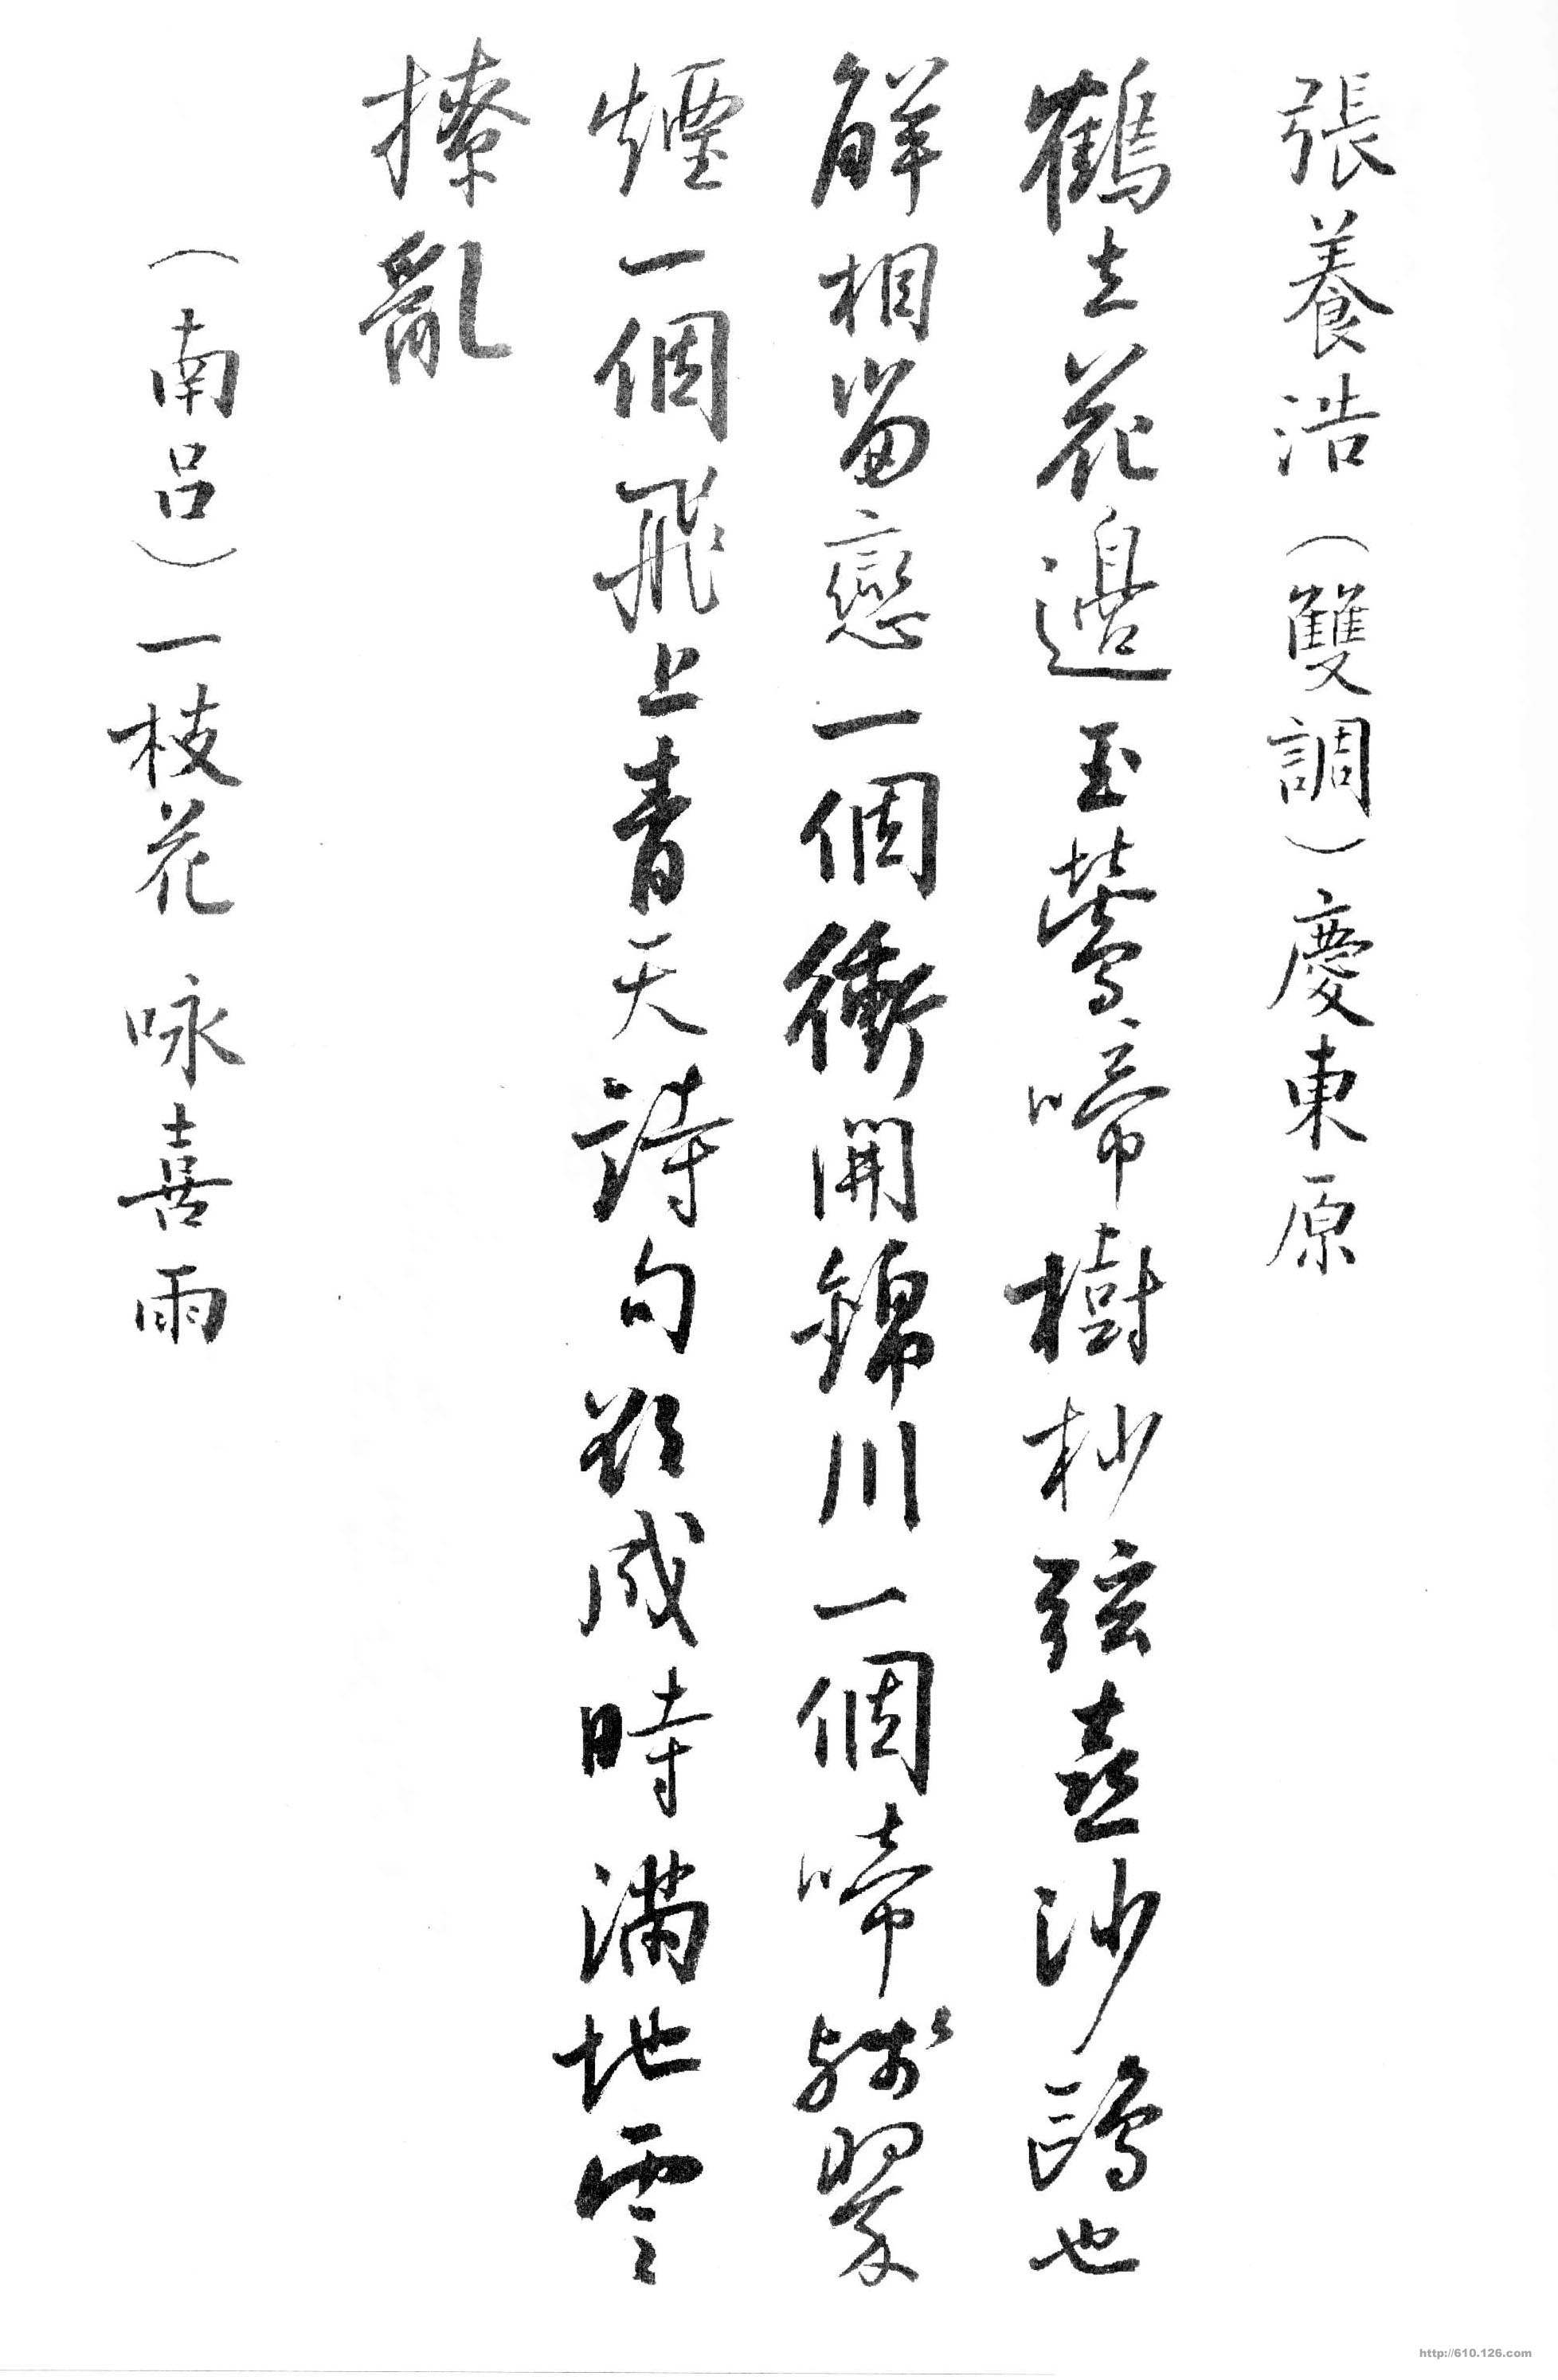 張養浩（雙調）慶東原
鶴立花邊玉鶯啼樹杪弦喜沙鷗也
解相留戀一個衝開錦川一個啼殘翠
煙一個飛上青天詩句欲成時滿地雲
撩亂
（南呂）一枝花 咏喜雨
http://610.126.com